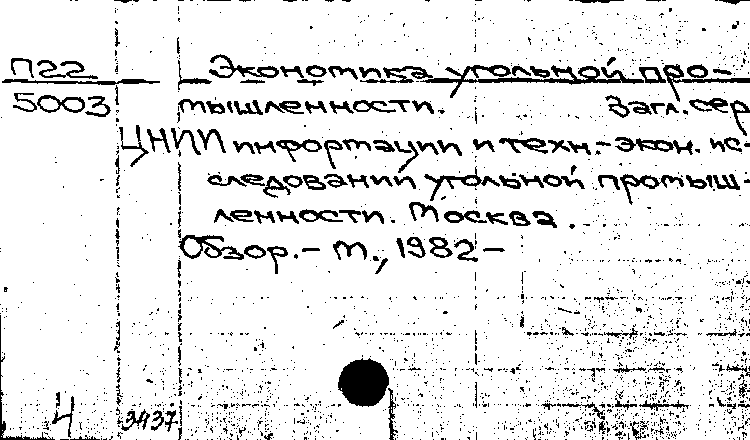 П22 Экономика угольной про-
5003 мышленности. Загл. сер.
ЦНИИ информации и техн.-экон. ис-
следований угольной промыш-
ленности. Москва.
Обзор. - М., 1982 -
Ч 3437